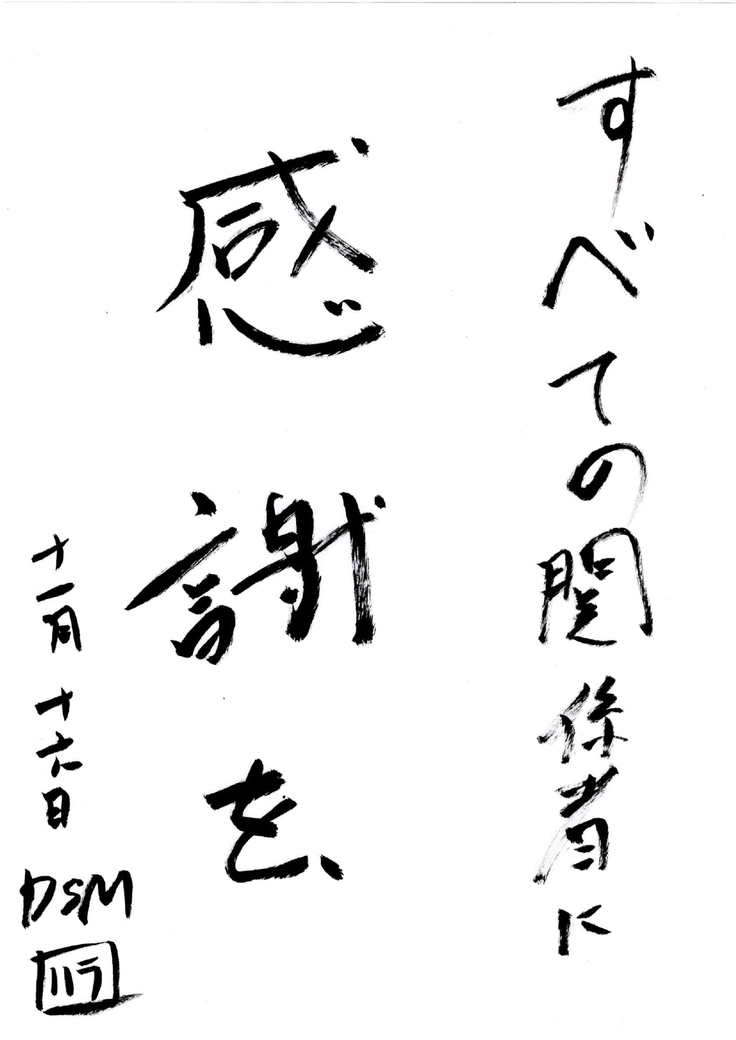 すべての関係者に
感謝を、
十一月十六日
DSM
ハラ